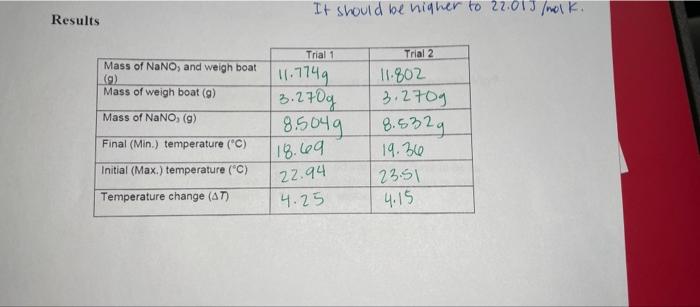 It should be higher to 22.01J/mol K.
Results
Trial 1 Trial 2
Mass of NaNO3 and weigh boat (g) 11.774g 11.802
Mass of weigh boat (g) 3.270g 3.270g
Mass of NaNO3 (g) 8.504g 8.532g
Final (Min.) temperature (°C) 18.69 19.36
Initial (Max.) temperature (°C) 22.94 23.51
Temperature change (ΔT) 4.25 4.15